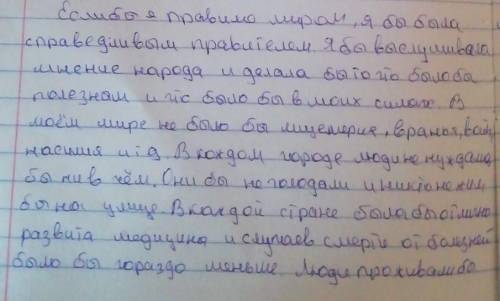 Если бы я правило миром, я бы была
справедливым правителем. Я бы выслушивала
мнение народа и делала бы то что было ба
полезнам и что было бы в моих силах. В
моём мире не было бы лицемерия, вранья, войн,
насилия и т д. В каждом городе люди не нуждались
бы ни в чём. Они бы не голодали и никто не жил
бы на улице. В каждой стране была бы отлично
развита медицина и случаев смерти от болезней
было бы гораздо меньше. Люди проживали бы